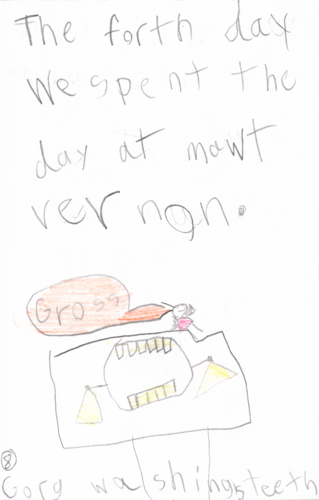 The forth day
We spent the
day at mowt
ver non.
Gross
8
Gorg washingsteeth